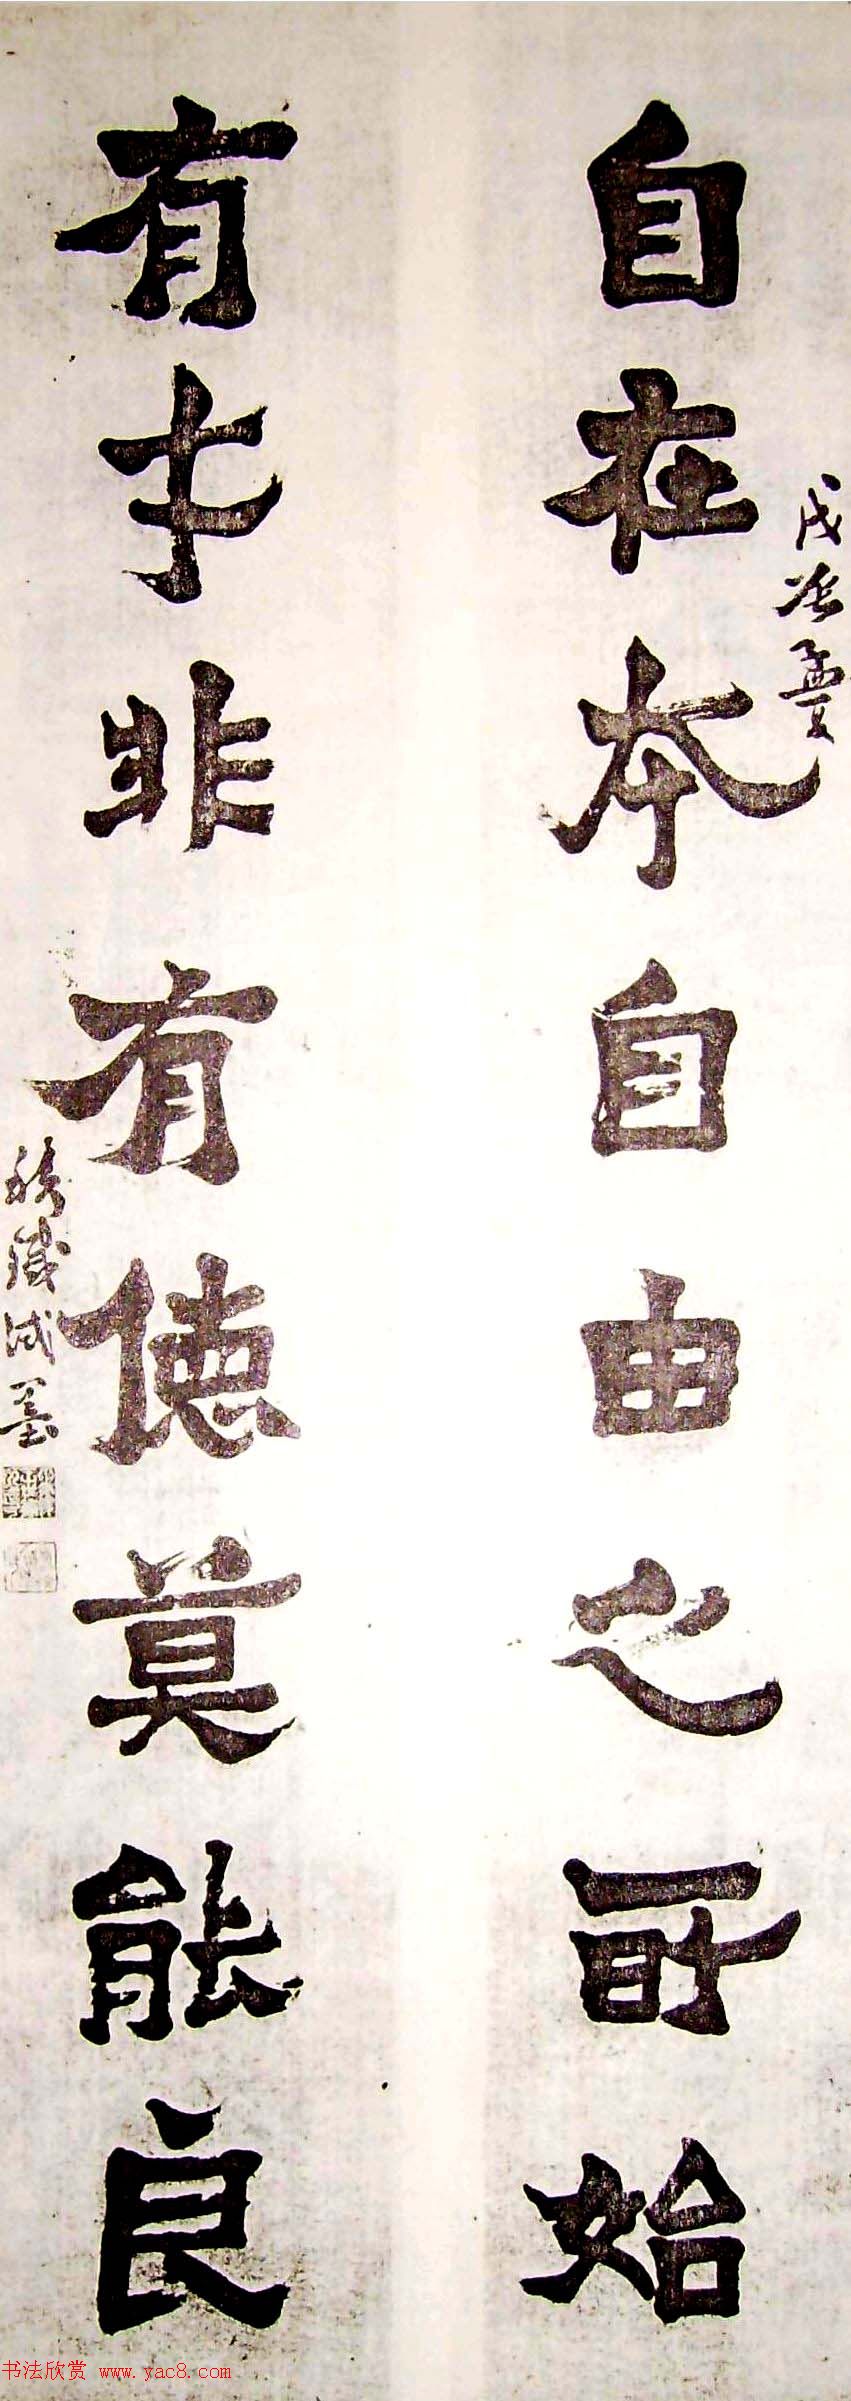 自在本自由之所始
孟夏
有才非有德莫能良
墨
书法欣赏 www.yac8.com